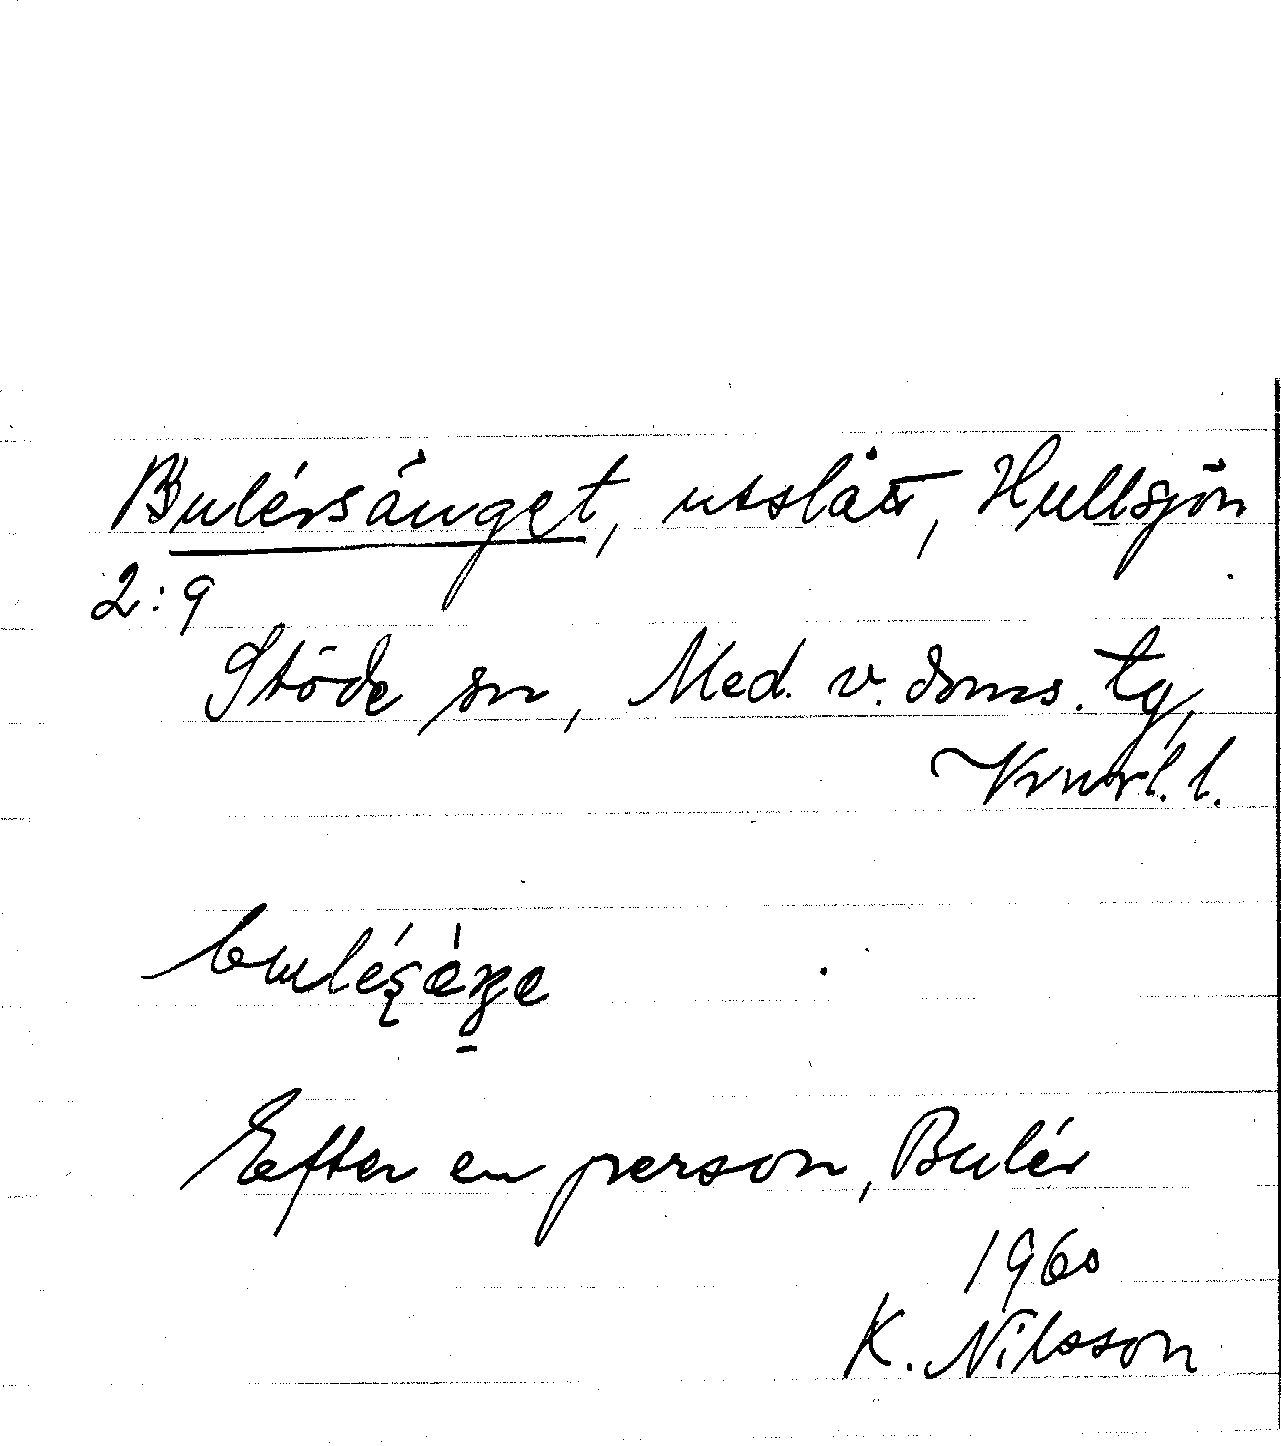 Bulérsänget, utslått, Hullsjön
2:9
Stöde sn, Med. v. doms. tg,
Vnorl. l.
Efter en person, Bulér
1960
K. Nilsson